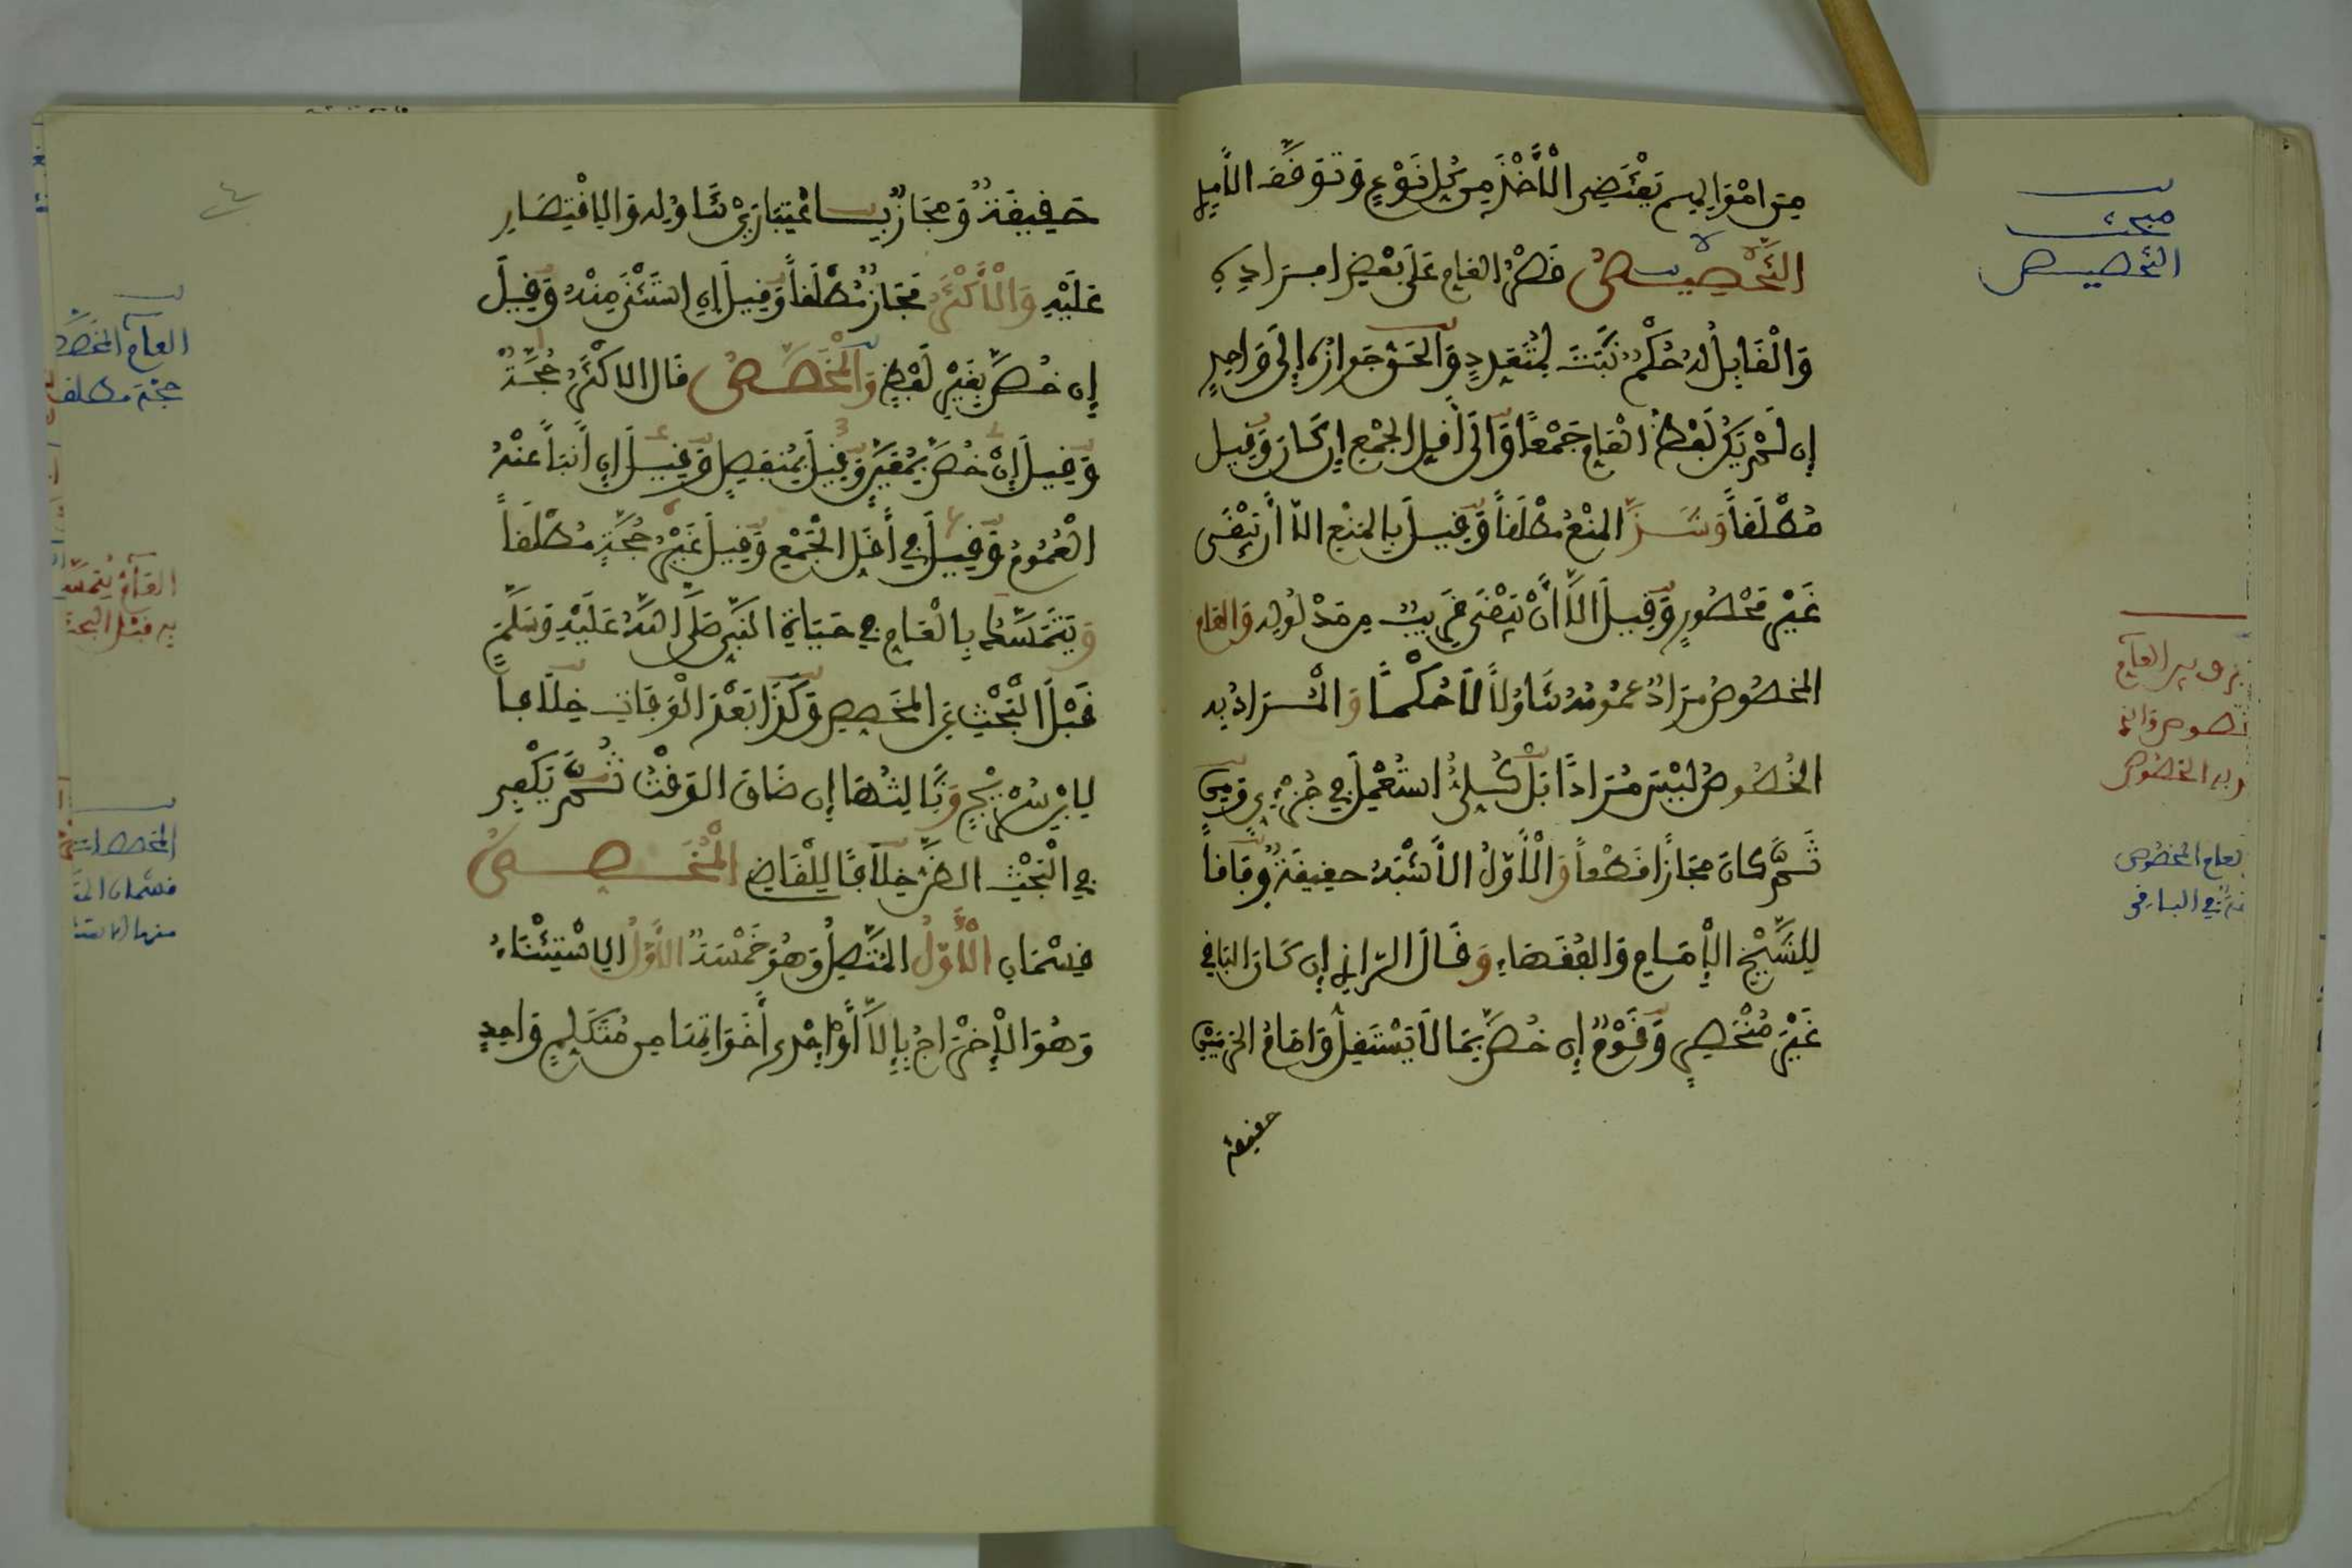 مبحث
التخصيص
مِنَ امْوَالِهِم يَقْتَضِي الْأَخْذَ مِن كُلِّ نَوْعٍ وَتَوَقَّفَ الْآمِدِي
التَّخْصِيصُ قَصْرُ العَامِ عَلَى بَعْضِ افْرَادِهِ
وَالْقَابِلُ لَهُ حُكْمٌ ثَبَتَ لِمُتَعَدِدٍ وَالحَقُّ جَوَازُهُ إِلَى وَاحِدٍ
إِن لَمْ يَكُن لَفْظُ الْعَامِ جَمْعاً وَإلَى أَقَلِ الجَمْعِ إِن كَانَ وَقِيل
مُطْلَقاً وَشَذَّ المَنْعُ مُطْلَقاً وَقِيلَ بِالمَنْعِ الّا أَن يَبْقَى
غَيْرُ مَحْصُورٍ وَقِيلَ الَّا أَنْ يَبْقَى قَرِيبٌ مِن مَدْلُولِهِ وَالعَام
المَخْصُوصُ مرَادٌ عمُومُهُ تَنَاوُلاً لَا حُكْماً وَالْمُرَادُ بِهِ
الخُصُوصُ لَيْسَ مُرَاداً بَلْ كُلِيٌّ اسْتُعْمِلَ فِي جُزْءِيٍ وَمِن
ثَمَّ كَانَ مَجَازاً قَطْعاً وَالْأَوَّلُ الأَشْبَهُ حقِيقَةٌ وِفَاقاً
لِلشَّيْخِ الْإِمَامِ وَالفُقَهَاءِ وَقَالَ الرَّازِي إِن كَانَ البَاقِي
غَيْرَ مُنْحَصِرٍ وَقَوْمٌ إِن خُصَّ بِمَا لَا يَسْتَقِلُّ وَامَامُ الحَرَمَيْنِ
حقيقة
العام
والمخصوص
به الخصوص
العام المخصوص
في الباقي
حَقِيقَةٌ وَمَجَازٌ بِاعْتِبَارَيْ تَنَاوُلِهِ وَالِاقْتِصَارِ
عَلَيْهِ وَالْأَكْثَرُ مَجَازٌ مُطْلَقاً وَقِيلَ إِنِ اسْتُثْنِيَ مِنْهُ وَقِيلَ
إِن خُصَّ بِغَيْرِ لَفْظٍ وَالْمُخَصَّصُ قَالَ الاكْثَرُ حُجَّةٌ
وَقِيلَ إِنْ خُصَّ بِمُعَيَّنٍ وَقِيلَ بِمُتَّصِلٍ وَقِيلَ إِن أَنْبَأَ عَنْهُ
الْعُمُومُ وَقِيلَ فِي أَقَلِ الْجَمْعِ وَقِيلَ غَيْرُ حُجَّةٍ مُطْلَقاً
وَيُتَمَسَّكُ بِالْعَامِ فِي حَيَاةِ النَّبِيِّ صَلَّى اللَّهُ عَلَيْهِ وَسَلَّمَ
قَبْلَ الْبَحْثِ عَنِ المُخَصِصِ وَكَذَا بَعْدَ الْوَفَاةِ خِلَافاً
لِابْنِ سُرَيْجٍ وَثَالِثُهَا إِن ضَاقَ الوَقْتُ ثُمَّ يَكْفِي
فِي الْبَحْثِ الظَّنُّ خِلَافاً لِلْقَاضِي الْمُخَصِّصُ
قِسْمَانِ الْأَوَّلُ المُتَّصِلُ وَهُوَ خَمْسَةٌ الأَوَّلُ الِاسْتِثْنَاءُ
وَهُوَ الْإِخْرَاجُ بِإِلَّا أَوْ إِحْدَى أَخَوَاتِهَا مِن مُتَكَلِمٍ وَاحِدٍ
٤
العام المخصص
حجة مطلقا
العام يتمسك
به قبل البحث
المخصص
قسمان
منها الاستثنا